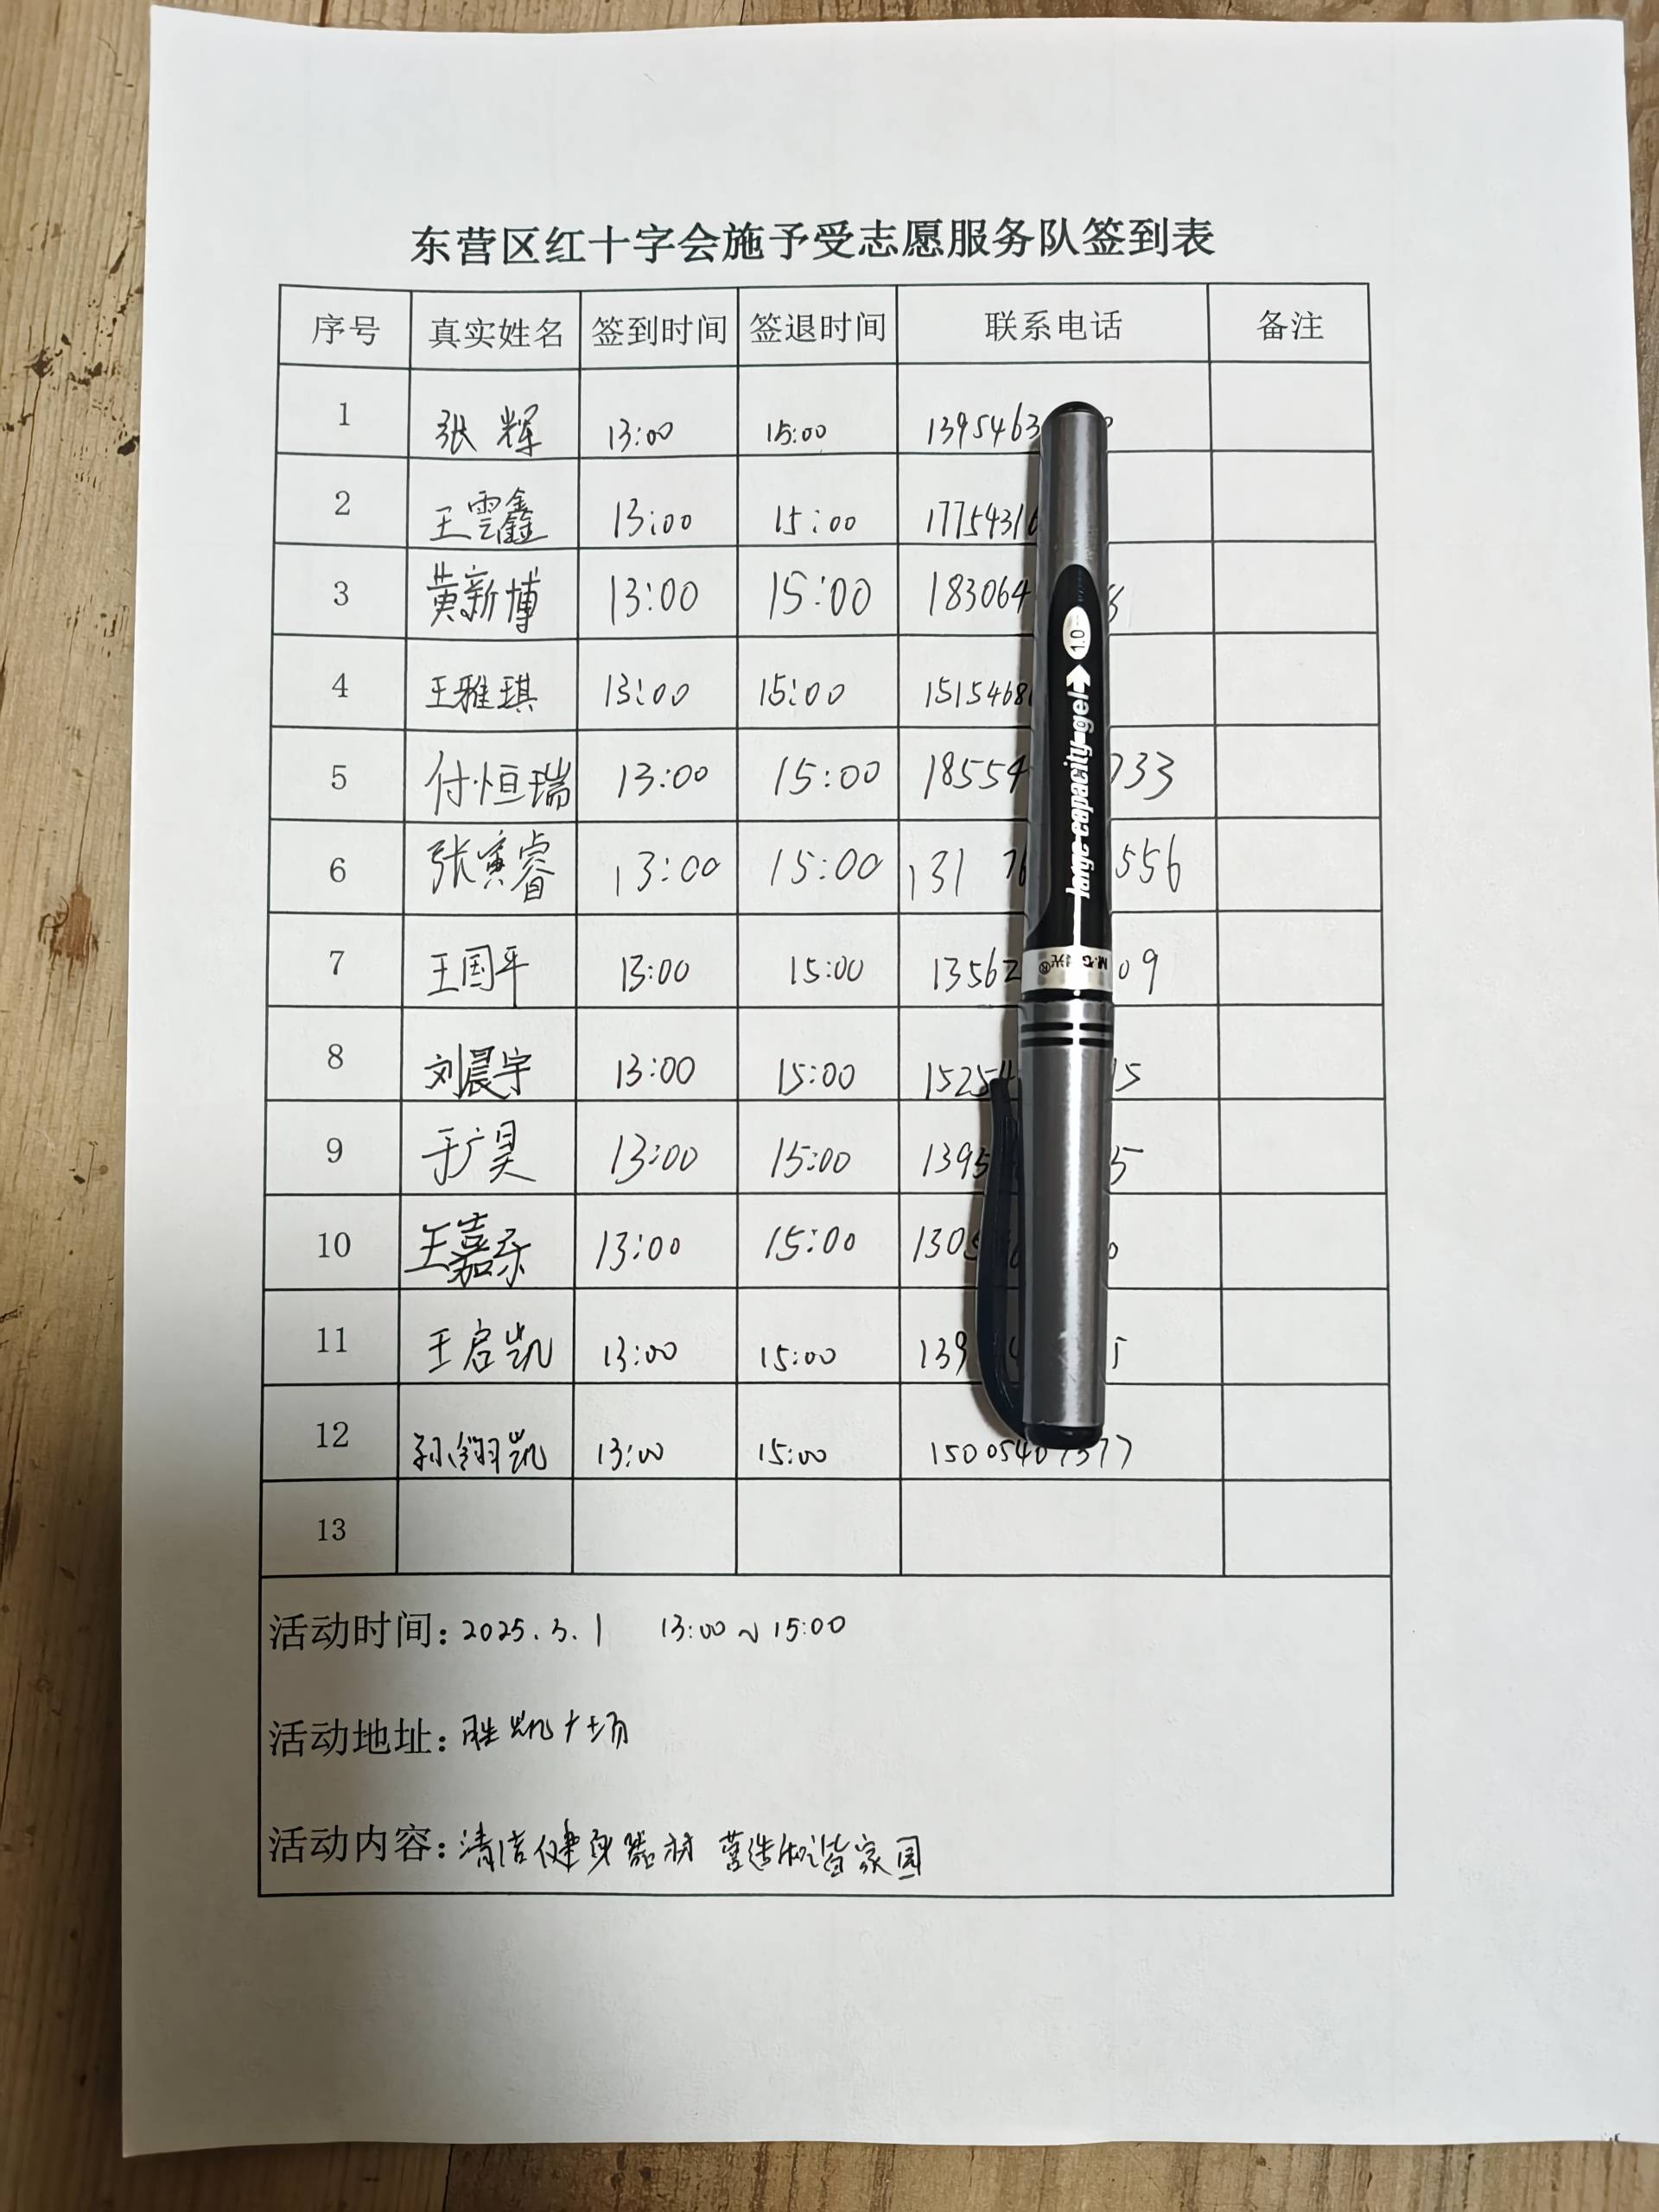 东营区红十字会施予受志愿服务队签到表
序号 真实姓名 签到时间 签退时间 联系电话 备注
1 张辉 13:00 15:00 1395463
2 王雲鑫 13:00 15:00 1775431
3 黄新博 13:00 15:00 183064
4 王雅琪 13:00 15:00 1515468
5 付恒瑞 13:00 15:00 18554 733
6 张寅睿 13:00 15:00 131 76 556
7 王国平 13:00 15:00 13562 09
8 刘晨宇 13:00 15:00 15254 15
9 于广昊 13:00 15:00 1395 5
10 王嘉乐 13:00 15:00 1305 0
11 王启凯 13:00 15:00 139 5
12 孙翎凯 13:00 15:00
13
活动时间: 2025.3.1 13:00~15:00
活动地址: 胜凯广场
活动内容: 清洁健身器材 营造和谐家园
large capacity gel 1.0